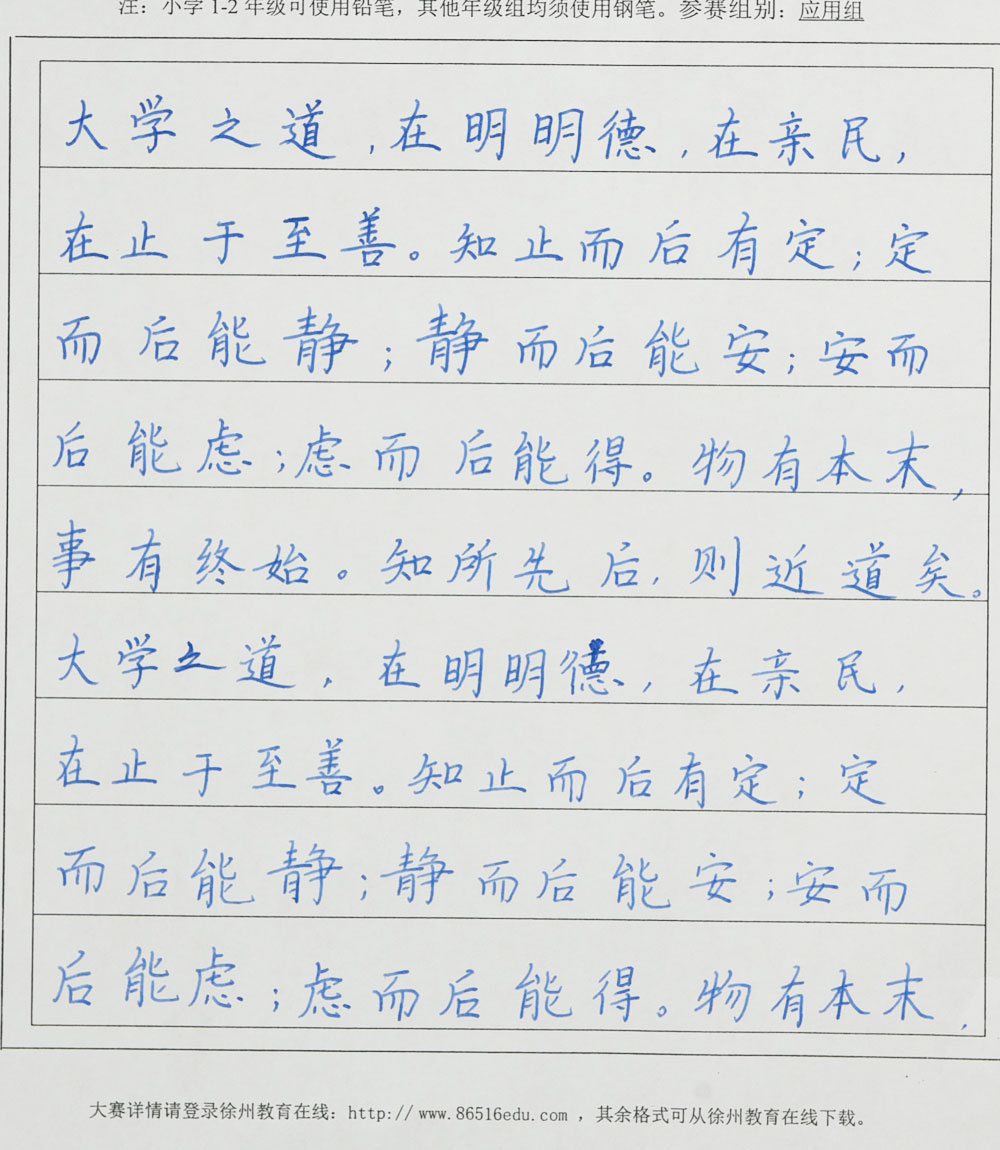 注：小学1-2年级可使用铅笔，其他年级组均须使用钢笔。参赛组别：应用组
大学之道，在明明德，在亲民，
在止于至善。知止而后有定；定
而后能静；静而后能安；安而
后能虑；虑而后能得。物有本末，
事有终始。知所先后，则近道矣。
大学之道，在明明德，在亲民，
在止于至善。知止而后有定；定
而后能静；静而后能安；安而
后能虑；虑而后能得。物有本末，
大赛详情请登录徐州教育在线：http://www.86516edu.com，其余格式可从徐州教育在线下载。